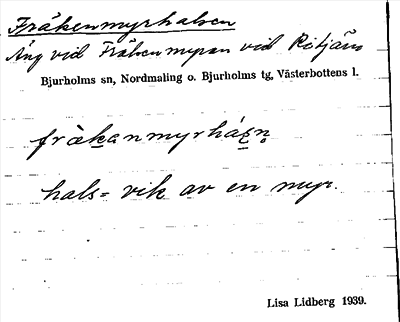 Fräkenmyrhalsen
Äng vid Fräkenmyran vid Rötjärn
Bjurholms sn, Nordmaling o. Bjurholms tg, Västerbottens l.
hals = vik av en myr.
Lisa Lidberg 1939.